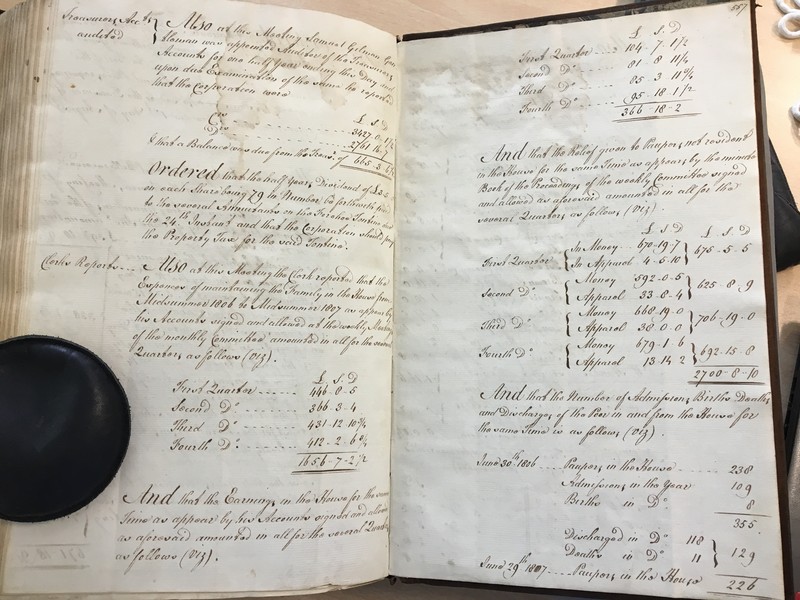 Treasurers Accts audited
Also at this Meeting Samuel Gilman Gent
was appointed Auditor of the Treasurers
Accounts for one half Year ending this Day and
upon due Examination of the same he reported
that the Corporation were
£ S D
Cr
Dr
& that a Balance was due from the Treasr of
Ordered that the half Years Dividend of
on each Share being 79 in Number be forthwith
to the several Annuitants on the Tontine
the 24th Instant and that the Corporation
the Property Tax for the said Tontine.
Clerks Reports
Also at this Meeting the Clerk reported that the
Expences of maintaining the Family in the House from
Midsummer 1806 to Midsummer 1807 as appear by
his Accounts signed and allowed at the weekly Meeting
of the monthly Committees amounted in all for the several
Quarters as follows (Viz).
£ S D
First Quarter 446-8-5
Second Do 366-3-4
Third Do 431-12-10¾
Fourth Do 412-2-6¾
1656-7-2½
And that the Earnings in the House for the same
Time as appear by his Accounts signed and allowed
as aforesaid amounted in all for the several Quarters
as follows (Viz).
557
£ S D
First Quarter 104-7-1½
Second Do 81-8-11¼
Third Do 85-3-11¾
Fourth Do 95-18-1½
366-18-2
And that the Relief given to Paupers not resident
in the House for the same Time as appears by the minute
Book of the Proceedings of the weekly Committees signed
and allowed as aforesaid amounted in all for the
several Quarters as follows (Viz)
£ S D £ S D
First Quarter In Money 670-19-7
In Apparel 4-5-10 675-5-5
Second Do Money 592-0-5
Apparel 33-8-4 625-8-9
Third Do Money 668-19-0
Apparel 38-0-0 706-19-0
Fourth Do Money 679-1-6
Apparel 13-14-2 692-15-8
2700-8-10
And that the Number of Admissions, Births Deaths
and Discharges of the Poor in and from the House for
the same Time is as follows (Viz).
June 30th 1806 Paupers in the House 238
Admissions in the Year 109
Births in Do 8
355.
Discharged in Do 118
Deaths in Do 11 129
June 29th 1807 Paupers in the House 226